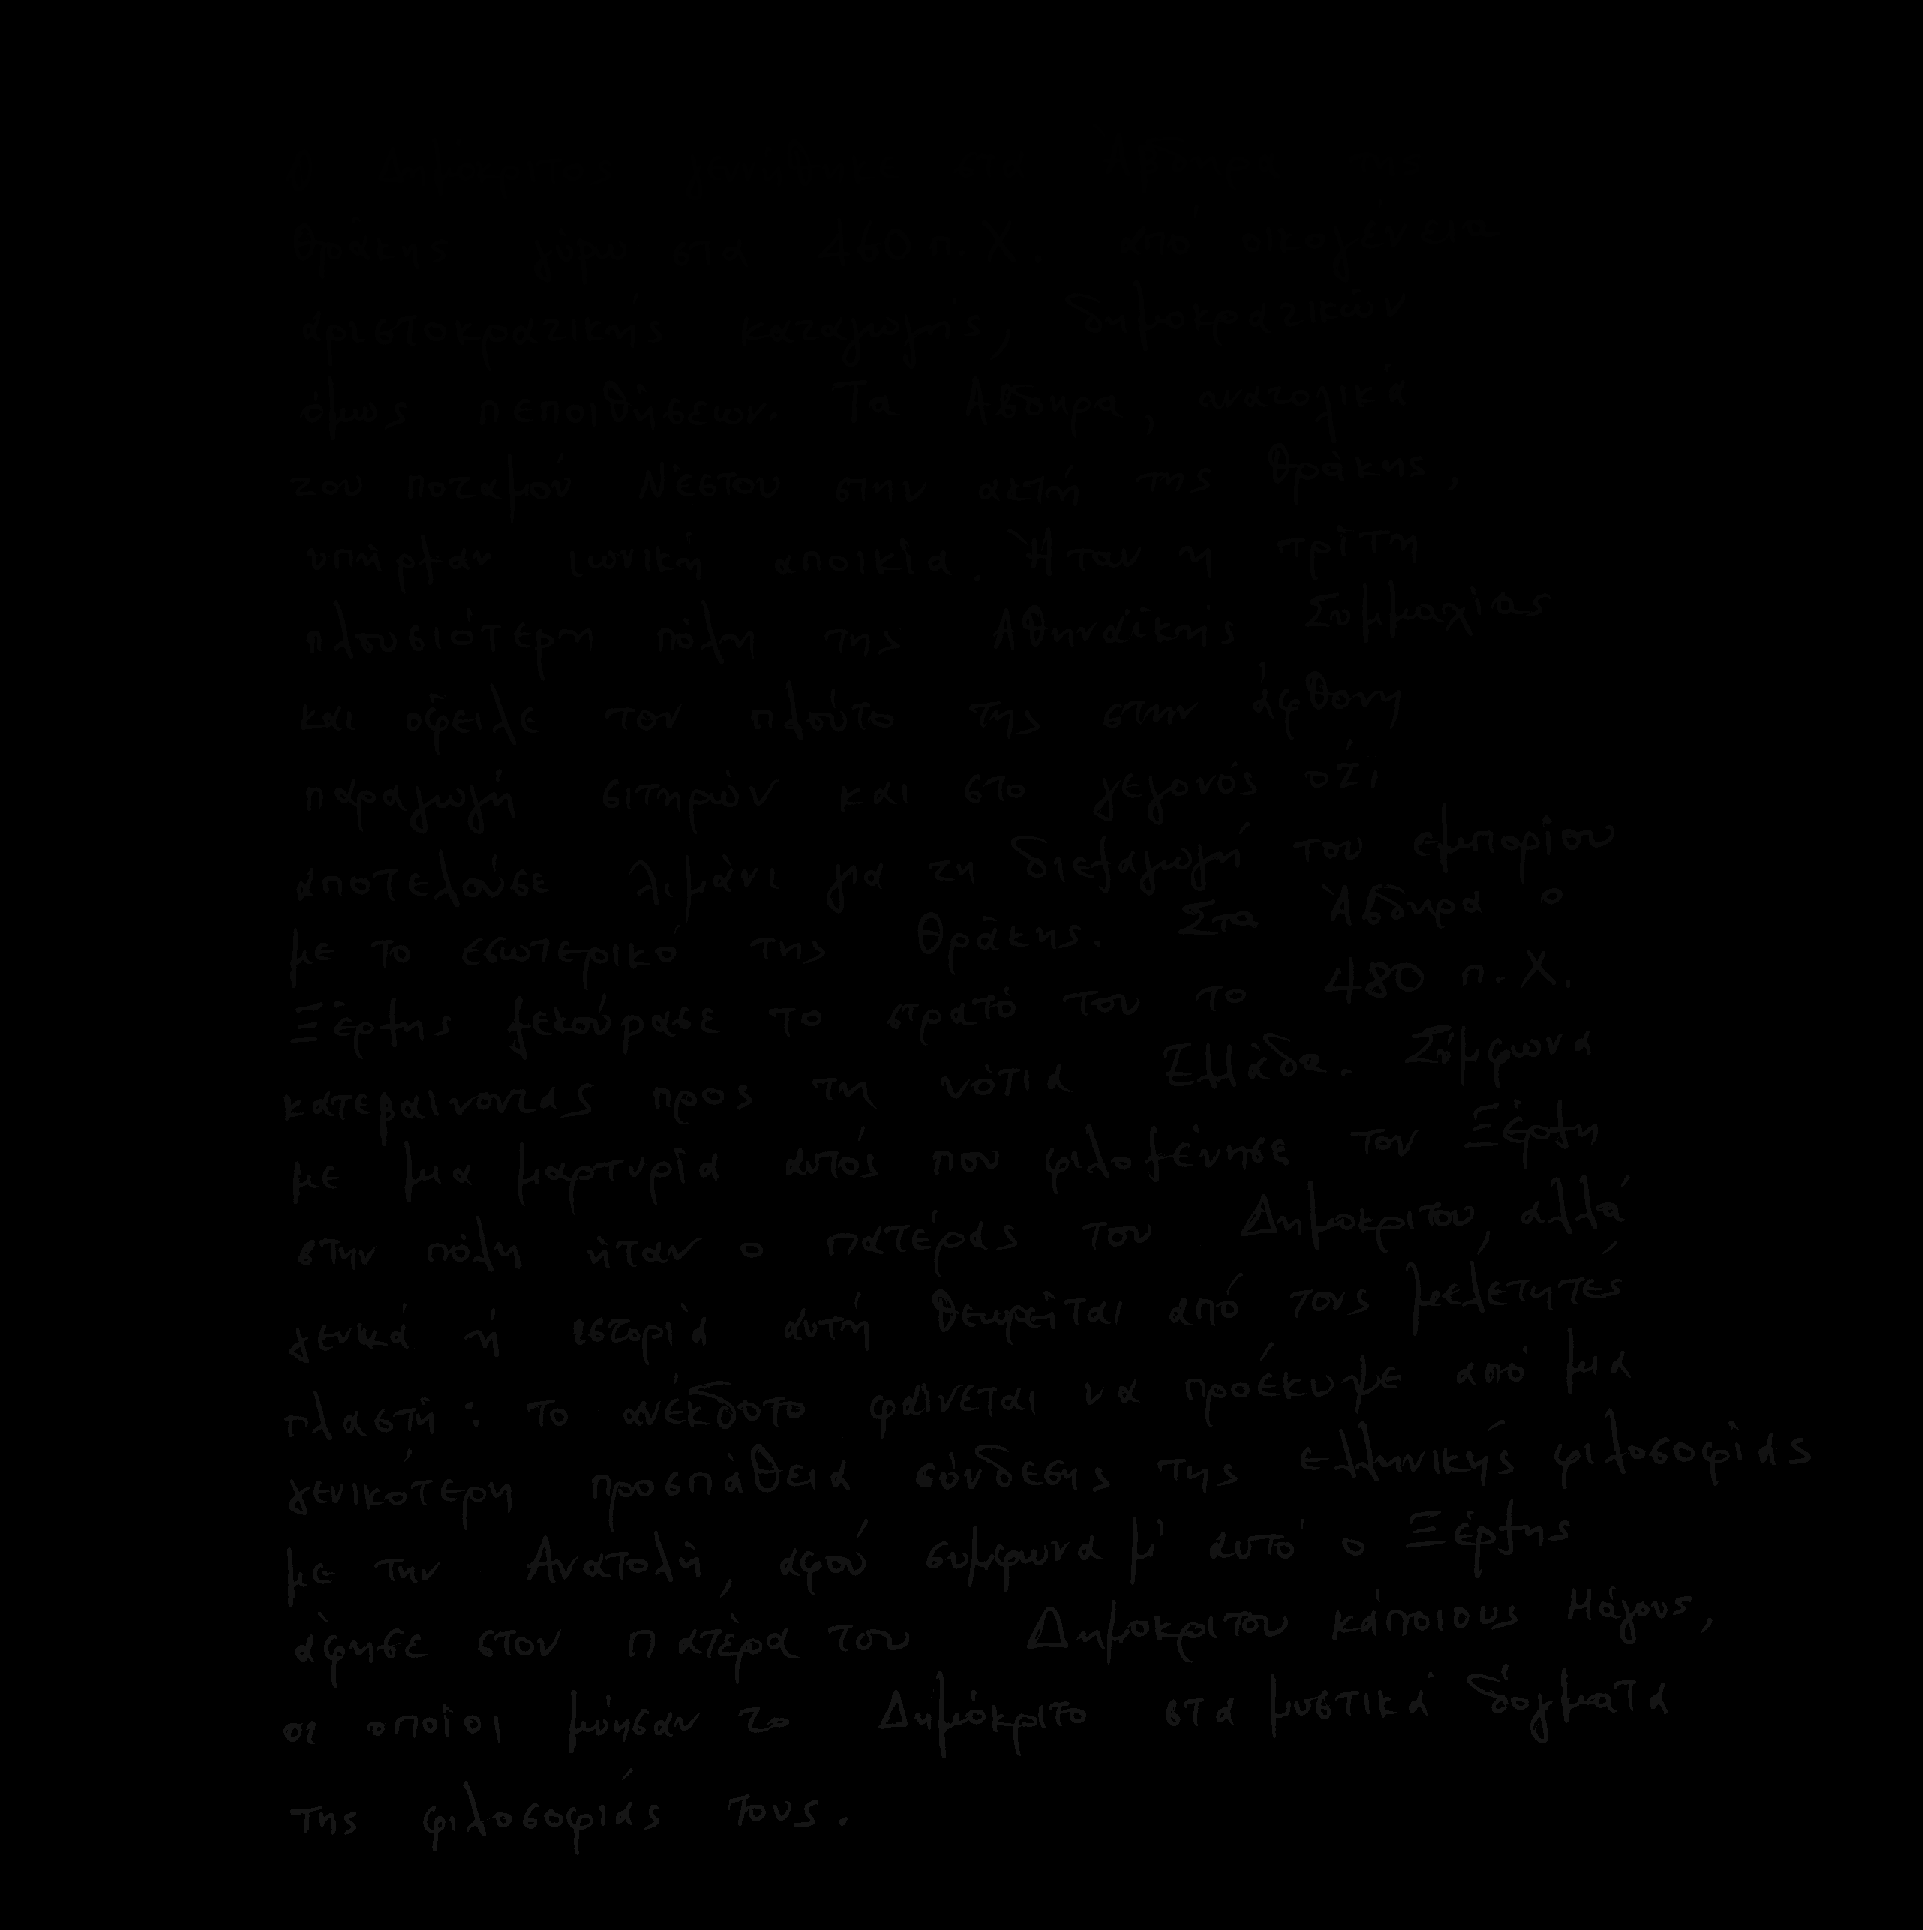 Ο Δημόκριτος γεννήθηκε στα Άβδηρα της
Θράκης γύρω στα 460 π.Χ. από οικογένεια
αριστοκρατικής καταγωγής, δημοκρατικών
όμως πεποιθήσεων. Τα Άβδηρα, ανατολικά
του ποταμού Νέστου στην ακτή της Θράκης,
υπήρξαν ιωνική αποικία. Ήταν η τρίτη
πλουσιότερη πόλη της Αθηναϊκής Συμμαχίας
και όφειλε τον πλούτο της στην άφθονη
παραγωγή σιτηρών και στο γεγονός ότι
αποτελούσε λιμάνι για τη διεξαγωγή του εμπορίου
με το εσωτερικό της Θράκης. Στα Άβδηρα ο
Ξέρξης ξεκούρασε το στρατό του το 480 π.Χ.
κατεβαίνοντας προς τη νότια Ελλάδα. Σύμφωνα
με μια μαρτυρία αυτός που φιλοξένησε τον Ξέρξη
στην πόλη ήταν ο πατέρας του Δημοκρίτου, αλλά
γενικά ή ιστορία αυτή θεωρείται από τους μελετητές
πλαστή: το ανέκδοτο φαίνεται να προέκυψε από μια
γενικότερη προσπάθεια σύνδεσης της ελληνικής φιλοσοφίας
με την Ανατολή, αφού συμφωνα μ' αυτό ο Ξέρξης
άφησε στον πατέρα του Δημοκρίτου κάποιους Μάγους,
οι οποίοι μύησαν το Δημόκριτο στα μυστικά δόγματα
της φιλοσοφίας τους.